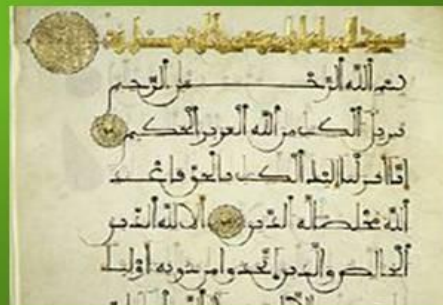 بسم الله الرحمن الرحيم
تنزيل الكتب من الله العزيز الحكيم
انا انزلنا اليك الكتب بالحق فاعبد
الله مخلصا له الدين الا لله الدين
الخالص والذين اتخذوا من دونه اوليا